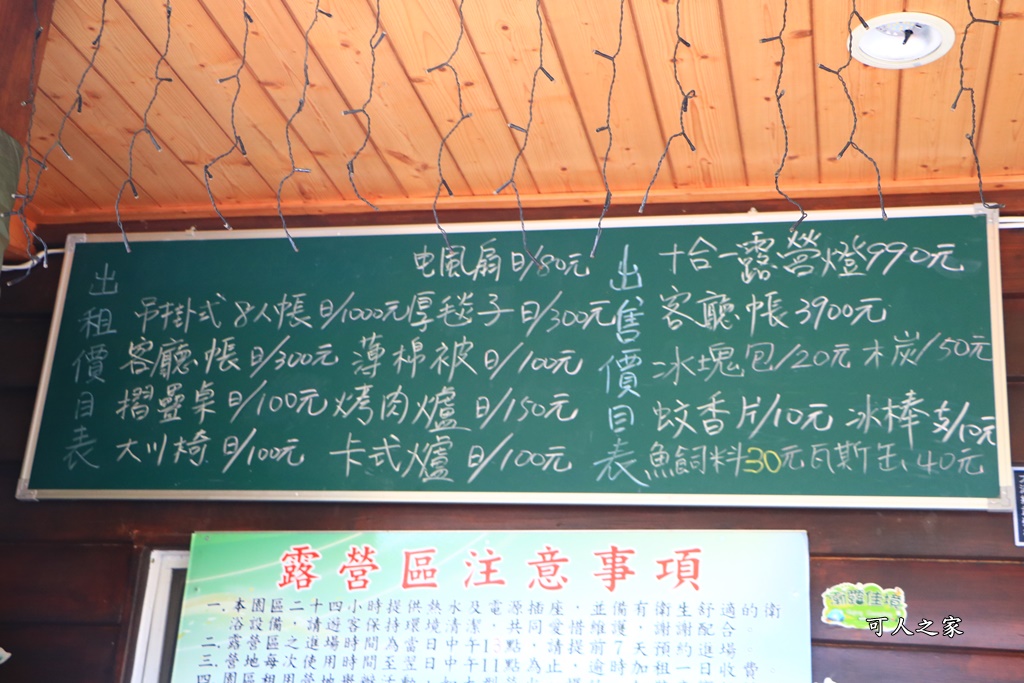 出租價目表
电風扇日/80元
吊掛式8人帳日/1000元 厚毯子日/300元
客廳帳日/300元 薄棉被日/100元
摺疊桌日/100元 烤肉爐日/150元
大川椅日/100元 卡式爐日/100元
出售價目表
十合一露營燈990元
客廳帳3900元
冰塊包/20元 木炭/50元
蚊香片/10元 冰棒支/10元
魚飼料30元 瓦斯缶40元
露營區注意事項
一.本園區二十四小時提供熱水及電源插座，並備有衛生舒適的衛
浴設備，請遊客保持環境清潔，共同愛惜維護，謝謝配合。
二.露營區之進場時間為當日中午13點，請提前7天預約進場。
三.營地每次使用時間至翌日中午11點為止，逾時加租一日收費。
四.園區租用營地
可人之家